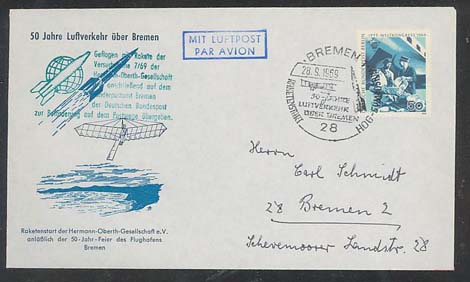 50 Jahre Luftverkehr über Bremen
Geflogen mit Rakete der
Versuchsreihe 7/69 der
Hermann-Oberth-Gesellschaft
anschließend auf dem
Sonderpostamt Bremen
der Deutschen Bundespost
zur Beförderung auf dem Postwege übergeben.
MIT LUFTPOST
PAR AVION
BREMEN
28.9.1969
50 JAHRE
LUFTVERKEHR
ÜBER BREMEN
28
HOG
50
Raketenstart der Hermann-Oberth-Gesellschaft e.V.
anläßlich der 50-Jahr-Feier des Flughafens
Bremen
Herrn
Carl Schmidt
28 Bremen 2
Schevemoorer Landstr. 28